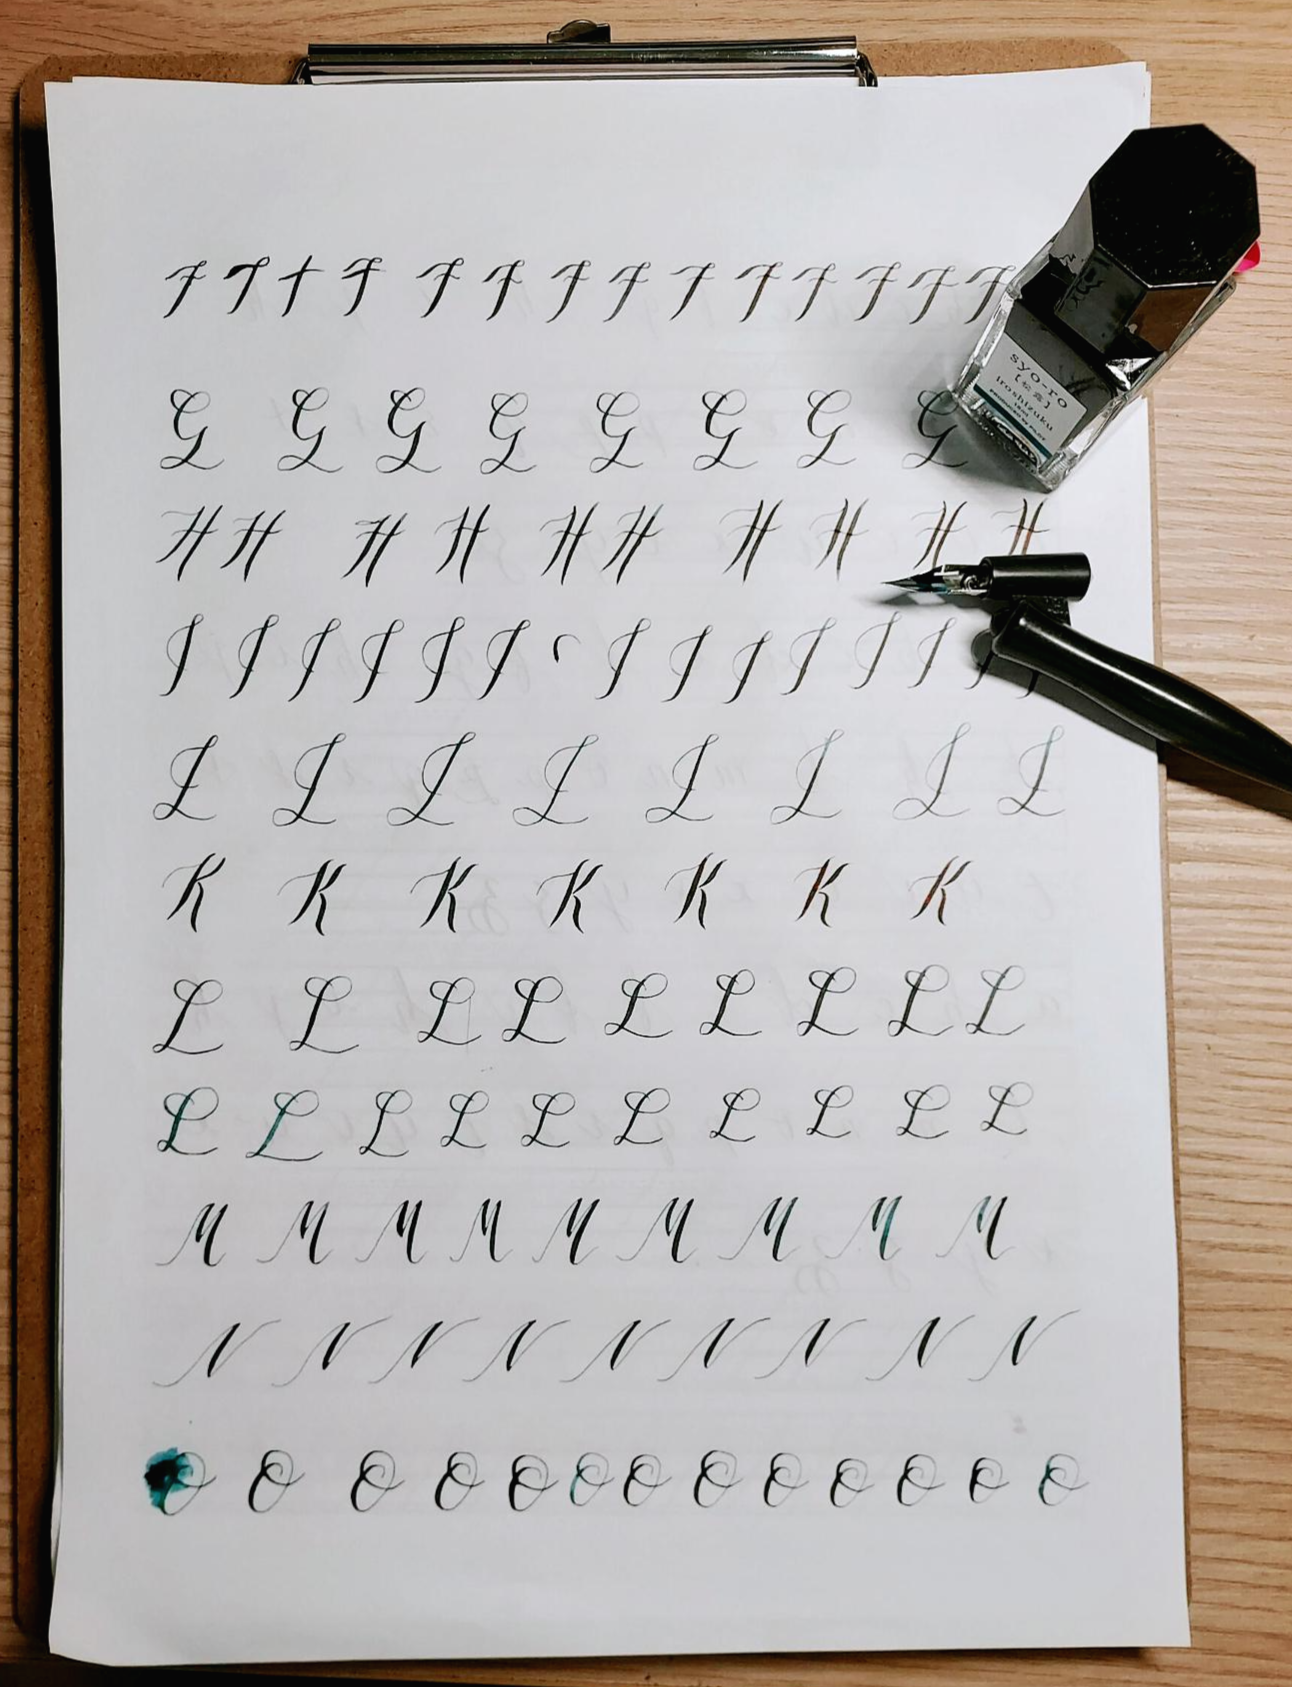 F F F F F F F F F F F F F F
G G G G G G G G
H H H H H H H H H H
I I I I I I I I I I I I I I
J J J J J J J J
K K K K K K K
L L L L L L L L L
L L L L L L L L L L
M M M M M M M M M
N N N N N N N N N
O O O O O O O O O O O O O
syo-ro
[松露]
iroshizuku